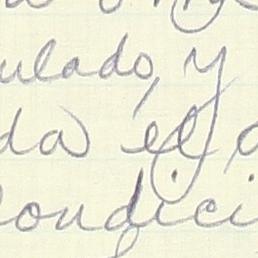 ulado, y
da el
Condici